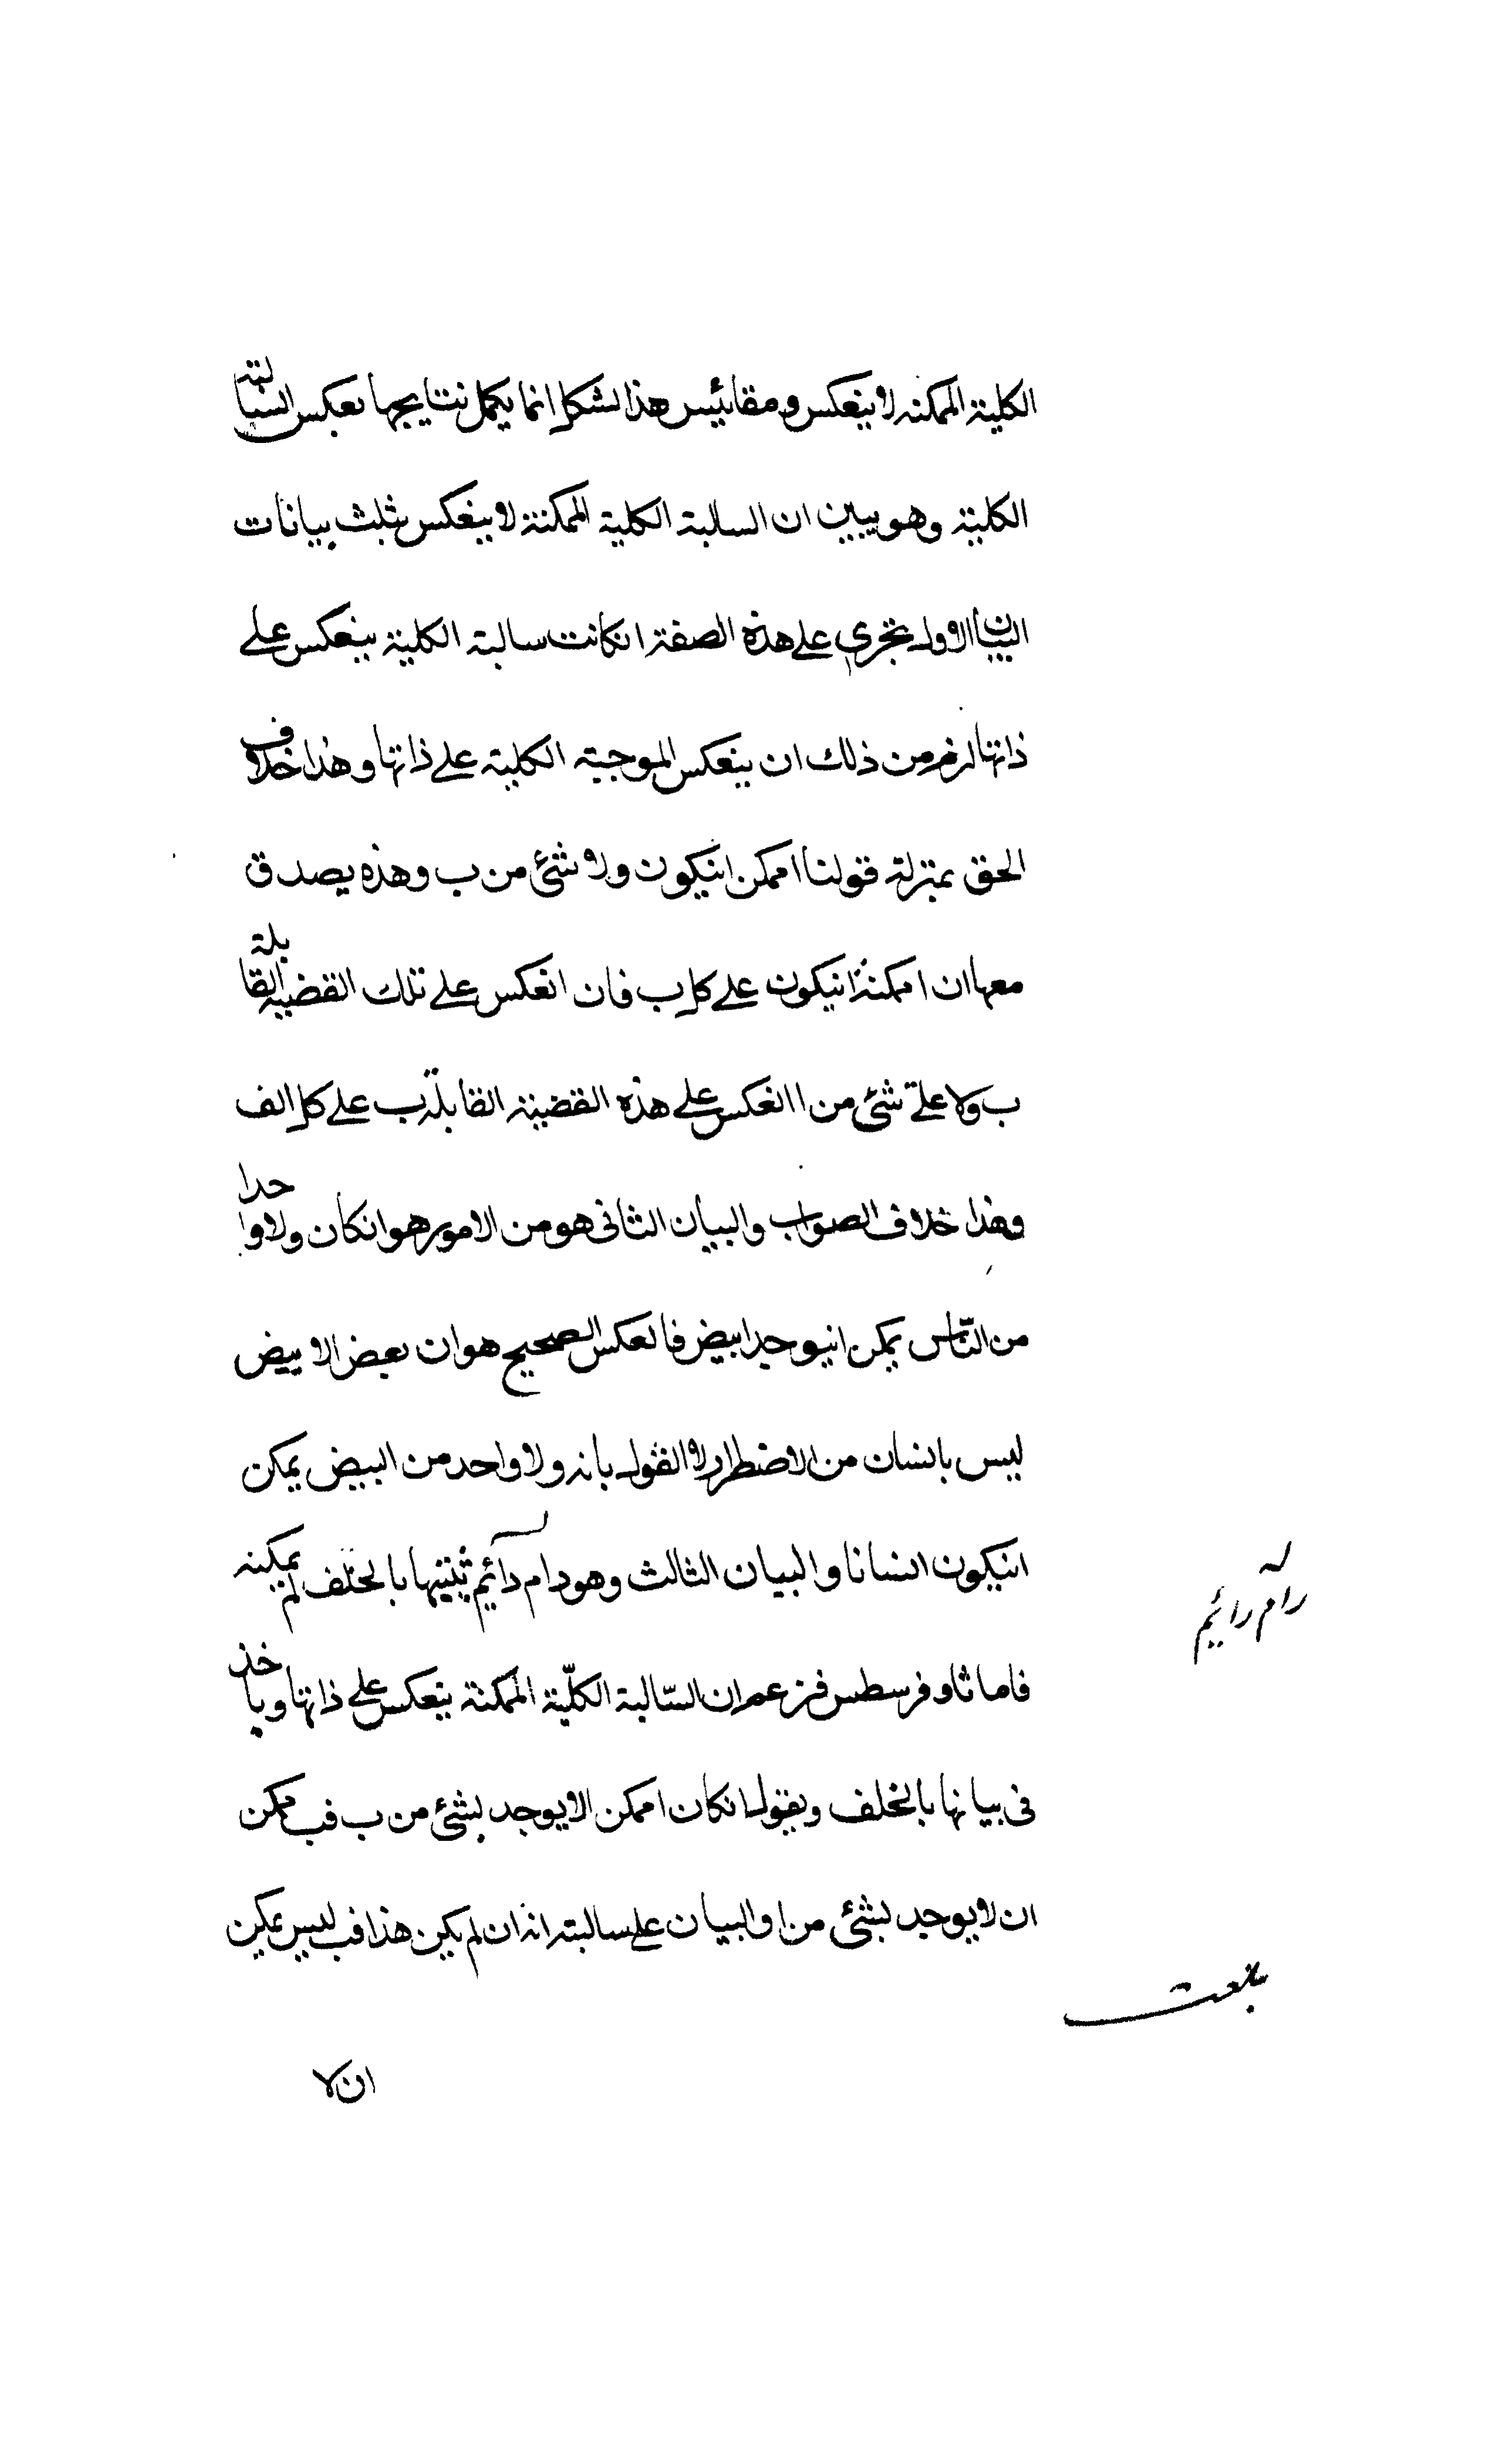 الكلية الممكنه لا ينعكس ومقائيس هذا لشكل انما يكمل نتايجها بعكس السالبة
الكلية وهو يبين ان السالبة الكلية الممكنة لا ينعكس بثلث بيانات
البيان الاول يجري على هذه الصفة انكانت سالبة الكلية ينعكس على
ذاتها لزم من ذلك ان ينعكس الموجبة الكلية على ذاتها وهذا خلاف
الحق بمنزلة قولنا ا ممكن انيكون ولا شئ من ب وهذه يصدق
معها ان ا ممكنة انيكون على كل ب فان انعكس على تلك القضية القابلة
ب ولا على شئ من ا انعكس على هذه القضية القابلة ب على كل الف
وهذا خلاف الصواب والبيان الثانى هو من الامور هو انكان ولا واحدا
من الناس يمكن انيوجد ابيض فالعكس الصحيح هو ان بعض الابيض
ليس بانسان من الاضطرار لا القول بانه ولا واحد من البيض يمكن
انيكون انسانا والبيان الثالث وهو دام دائيم ثنيتها بالخلف لم يمكينه
فاما ثاوفرسطس فزعم ان السّالبة الكلّية الممكنة ينعكس على ذاتها وياخذ
فى بيانها بالخلف ويقول انكان ا ممكن الا يوجد بشئ من ب فب ممكن
ان لا يوجد بشئ من ا والبيان على سالبته انه ان لم يكن هذا فب ليس يمكن
رام رائيم
بلغت
ان لا